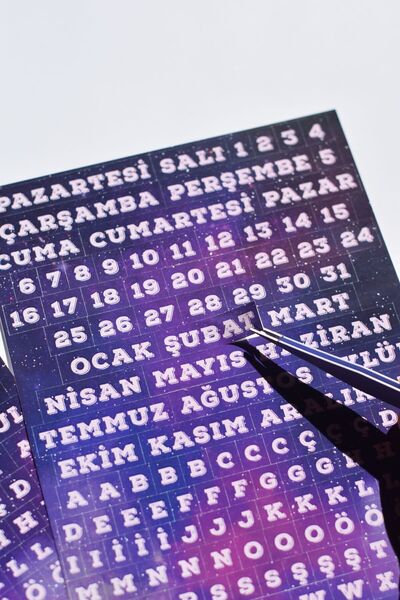 PAZARTESİ SALI 1 2 3 4
ÇARŞAMBA PERŞEMBE 5
CUMA CUMARTESİ PAZAR
6 7 8 9 10 11 12 13 14 15
16 17 18 19 20 21 22 23 24
25 26 27 28 29 30 31
OCAK ŞUBAT MART
NİSAN MAYIS HAZİRAN
TEMMUZ AĞUSTOS
EKİM KASIM
A A B B C C C Ç Ç
D E E F F G G G
I İ İ J J K K L
M M N N O O O Ö Ö
S S Ş Ş T
W W X